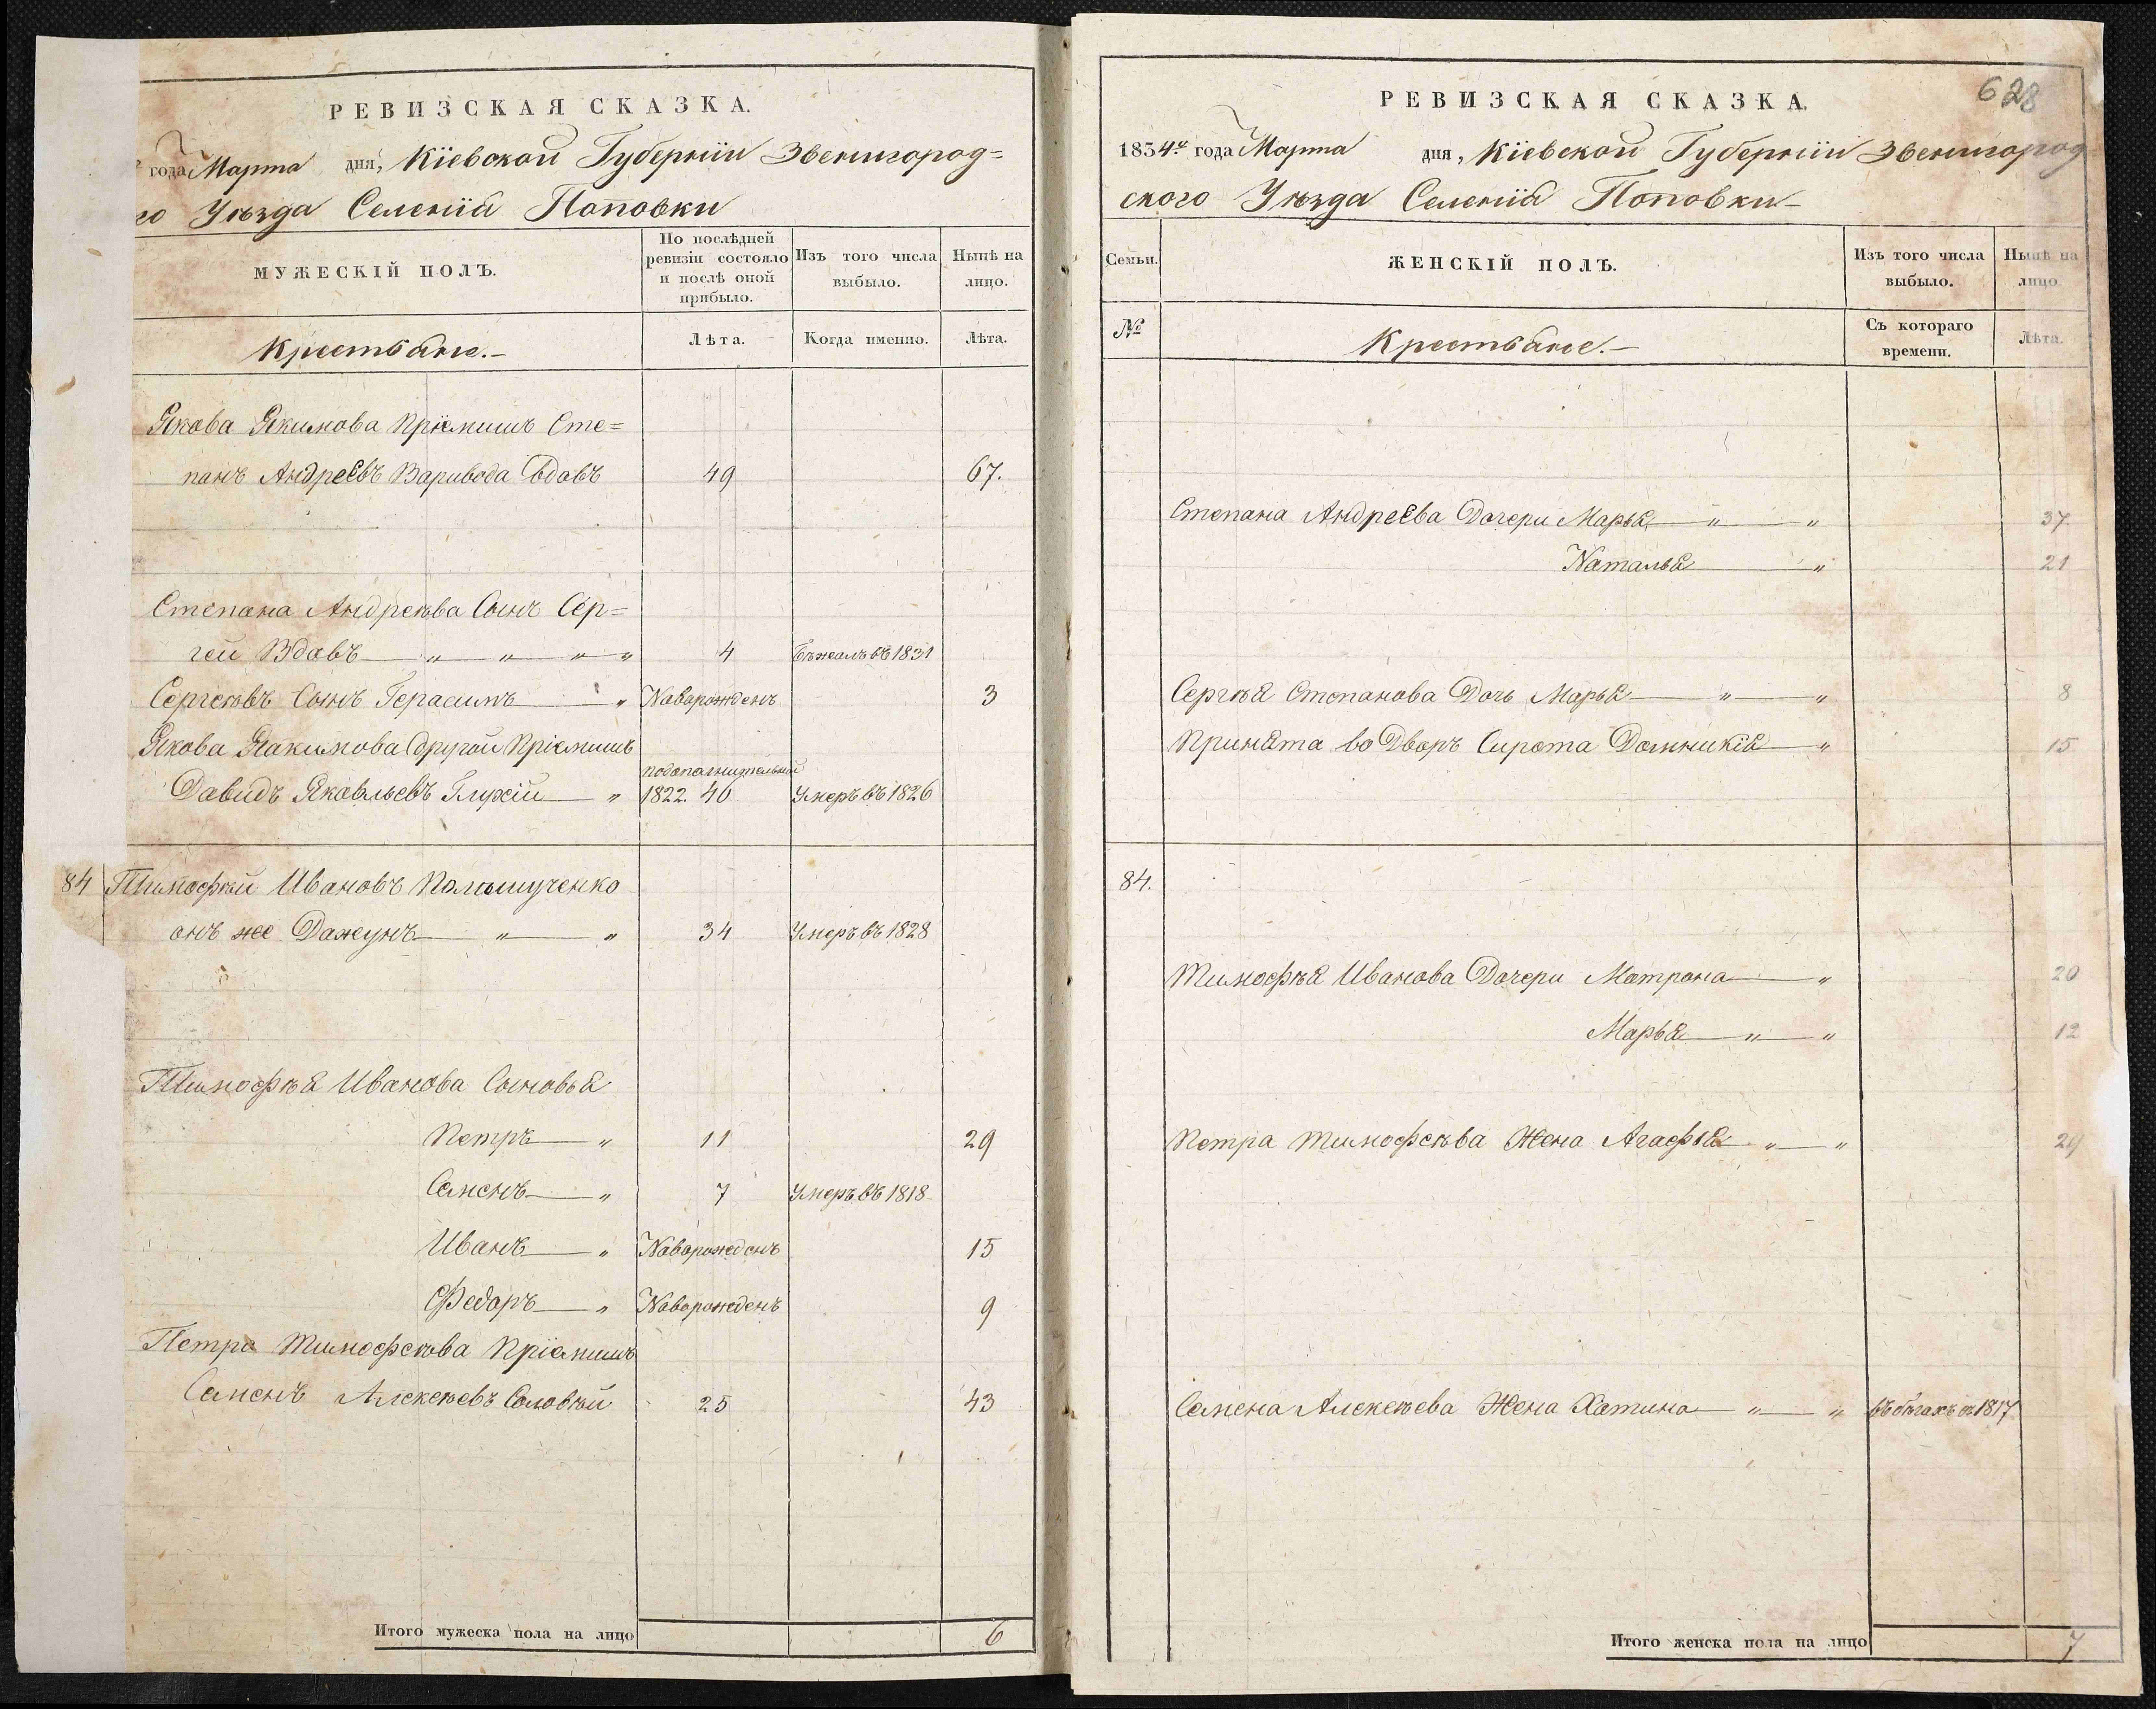 РЕВИЗСКАЯ СКАЗКА.
года Марта дня, Кіевской Губерніи Звенигород=
го Уѣзда Селенія Поповки
МУЖЕСКІЙ ПОЛЪ.
По послѣдней ревизіи состояло и послѣ оной прибыло.
Изъ того числа выбыло.
Нынѣ на лицо.
Крестьяне.-
Лѣта.
Когда именно.
Лѣта.
Якова Якимова Пріемишъ Сте=
панъ Андреевъ Варивода вдовъ 49 67.
Степана Андреѣва Сынъ Сер=
гей Вдовъ — „ — „ — „ — „ 4 бѣжалъ въ 1831
Сергеѣвъ Сынъ Герасимъ — „ Новорожденъ 3
Якова Якимова другой Пріемишъ
Давидъ Яковльевъ Глухій — „ подополнительной 1822. 40 Умеръ въ 1826
84 Тимофѣй Ивановъ
онъ же Дажунъ — „ — „ 34 Умеръ въ 1828
Тимофѣя Иванова Сыновья
Петръ — „ 11 29
Семенъ — „ 7 Умеръ въ 1818
Иванъ — „ Новорожденъ 15
Федоръ — „ Новорожденъ 9
Петра Тимофеѣва Пріемишъ
Семенъ Алексѣевъ Соловѣй 25 43
Итого мужеска пола на лицо 6
628
РЕВИЗСКАЯ СКАЗКА.
1834го года Марта дня, Кіевской Губерніи Звенигород
ского Уѣзда Селенія Поповки-
Семьи.
ЖЕНСКІЙ ПОЛЪ.
Изъ того числа выбыло.
Нынѣ на лицо.
№
Крестьяне.-
Съ котораго времени.
Лѣта.
Степана Андреева Дочери Марья — „ — „ 37.
Наталья — „ 21
Сергѣя Степанова Дочь Марья — „ — „ 8
Принята во Дворъ Сирота Домникія — „ 15
84.
Тимофѣя Иванова Дочери Матрона — „ 20
Марья — „ — „ 12
Петра Тимофеѣва Жена Агафья — „ — „ 29
Семена Алексѣева Жена — „ — „ въ бѣгахъ с 1817
Итого женска пола на лицо 7